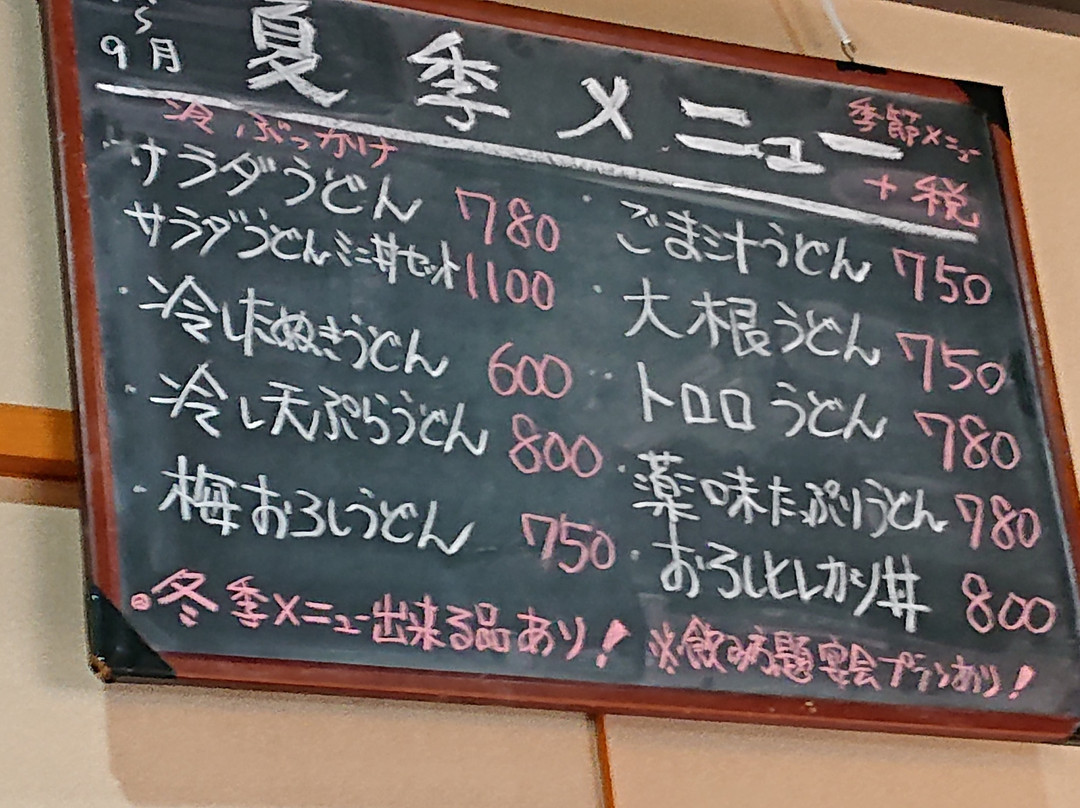 9月
夏季メニュー
季節メニュー
+税
冷ぶっかけ
サラダうどん 780
サラダうどんミニ丼セット 1100
・冷したぬきうどん 600
・冷し天ぷらうどん 800
・梅おろしうどん 750
・ごま汁うどん 750
・大根うどん 750
・トロロうどん 780
・薬味たぷりうどん 780
・おろしヒレカツ丼 800
冬季メニュー出来る品あり!
※飲み放題宴会プランあり!